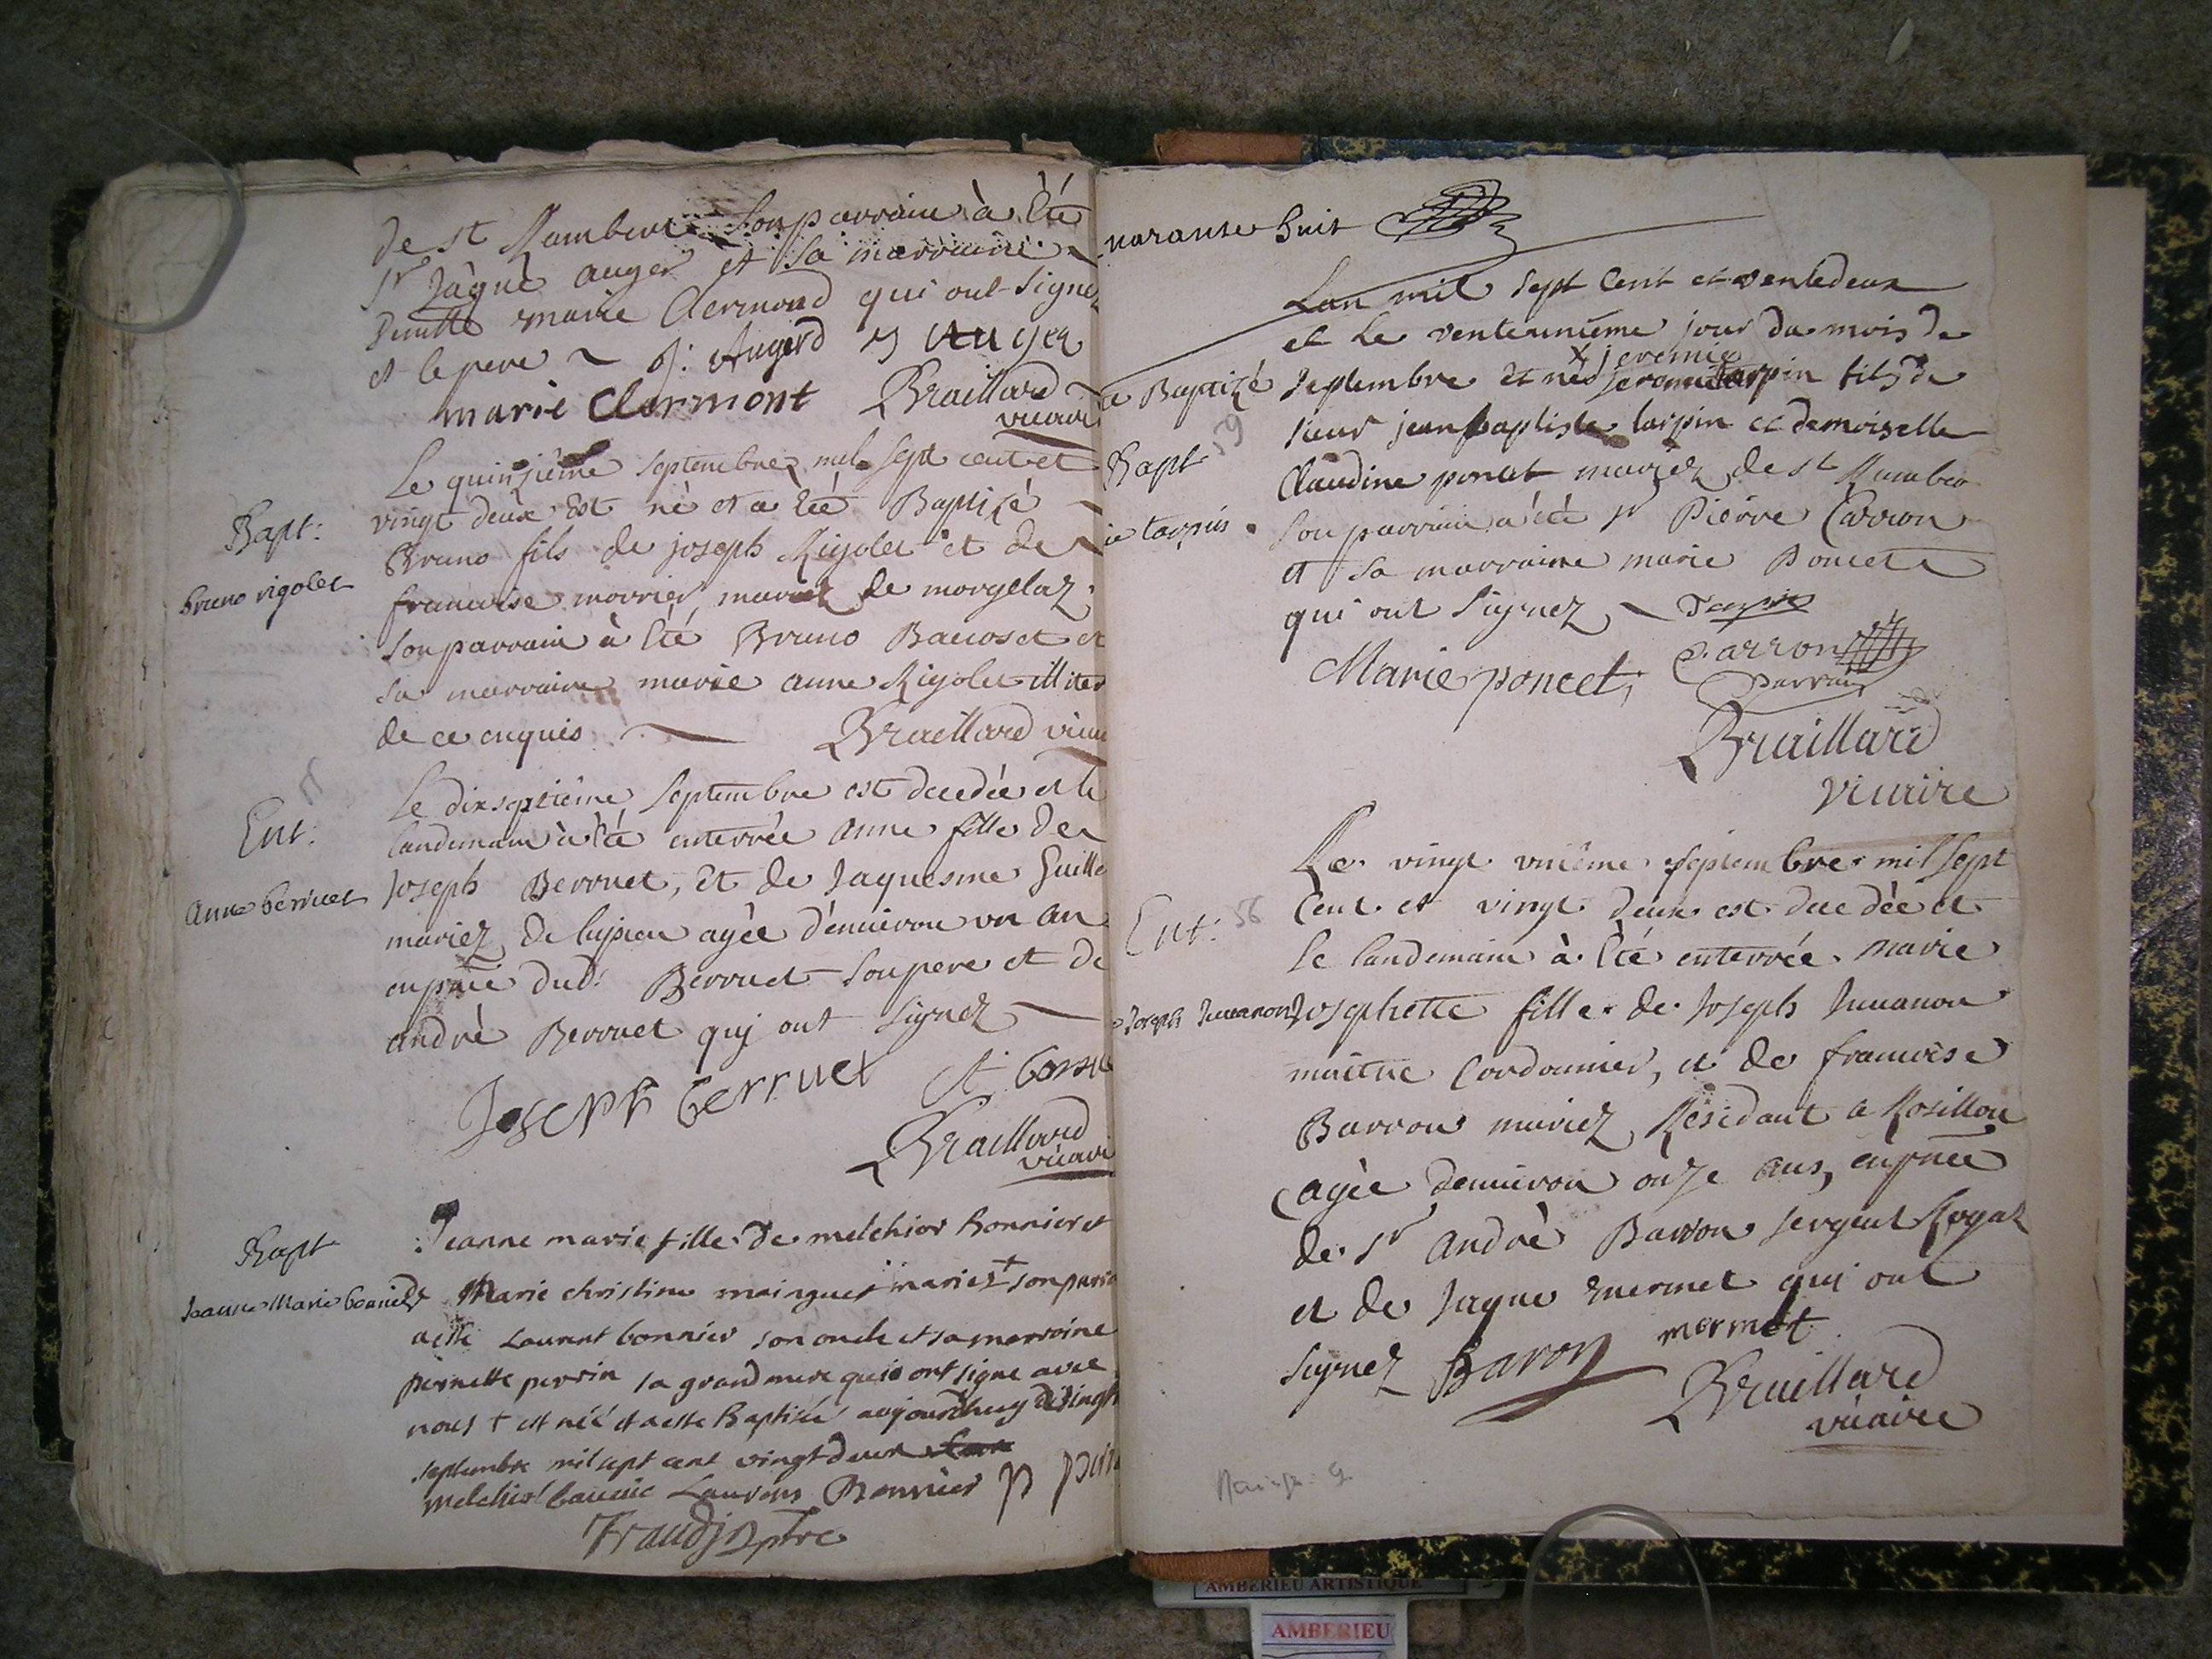 de st Rambert Son parrain à Eté
Sr Jâque auger et Sa marraine
Dmlle marie Clermond qui ont signez
et le pere J: Augerd J Auger
marie Clermont Braillard
vicaire
Bapt:
bruno rigolet
Le quinzième septembre mil sept cent et
vingt deux Est né et a Eté Baptizé
Bruno fils de joseph Rigolet et de
francoise morrier mariez de morgelaz
Son parrain à Eté Bruno Bacoset et
sa marraine marie anne Rigolet illiter
de ce enquis Braillard vicai
Ent:
anne berruet
Le dixseptième Septembre est decedée et le
landemain à Eté enterrée anne fille de
Joseph Berruet, Et de Jaquesme Guille
mariez de lupieu agée d'enuiron un an
en pnce dud: Berruet son pere et de
andrè Berruet quj ont signez
Joseph berruet A
Braillard
vicaire
Bapt
Jeanne Marie bonnier
Jeanne marie fille de melchior bonnier et
Marie christine mainguet mariez + son paria
a esté Laurent bonnier son oncle et sa marroine
pernette perrin sa grand mere qui ont signe avec
nous + est née et a esté Baptisée aujourdhuy vingt
septembre mil sept cent vingt deux
melchior Laurens Bonnier p peri
ptre
uarante huit
Lan mil sept cent et ventedeux
et le venteunième jour du mois de
a Baptizé septembre Et nés X jeremie tarpin fils de
Bapt 59
sieur jean baptiste tarpin et demoiselle
Claudine poncet mariez de st Rambert
ie tarpin
Son parrain a été sr Pierre Carron
et sa marraine marie Poncet
qui ont Signez Tarpin
Marie poncet, P. arron
parrain
Braillard
vicaire
Ent: 56
Joseph Juuanon
Le vingt unième septembre mil sept
Cent et vingt deux est decedée et
le landemain à Eté enterrée Marie
Josephette fille de Joseph Juuanon
maitre Cordonnier, et de francoise
Barron mariez Residant a Rosillon
agée denuiron onze ans, en pnce
de sr andrè Barron sergent Royal
et de Jaque mermet qui ont
Signez Baron mermet
Braillard
vicaire
AMBERIEU ARTISTIQUE
AMBERIEU